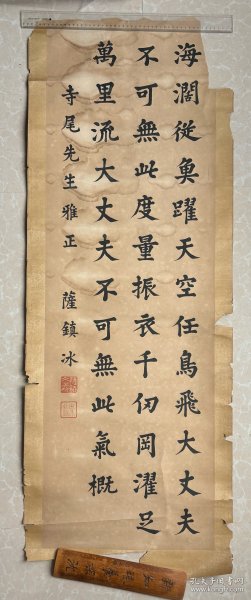 海濶従魚躍天空任鳥飛大丈夫
不可無此度量振衣千仞岡濯足
萬里流大丈夫不可無此氣概
寺尾先生雅正 薩鎮冰